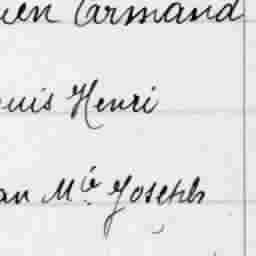 ien Armand
ouis Henri
an Mie Joseph